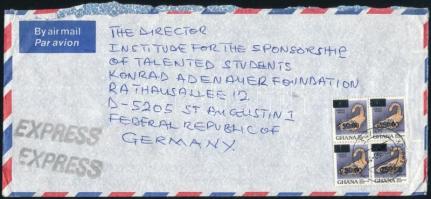 By air mail
Par avion
THE DIRECTOR
INSTITUTE FOR THE SPONSORSHIP
OF TALENTED STUDENTS
KONRAD ADENAUER FOUNDATION
RATHAUSALLEE 12
D-5205 ST AUGUSTIN 1
FEDERAL REPUBLIC OF
GERMANY.
EXPRESS
EXPRESS
GHANA GHANA
GHANA GHANA